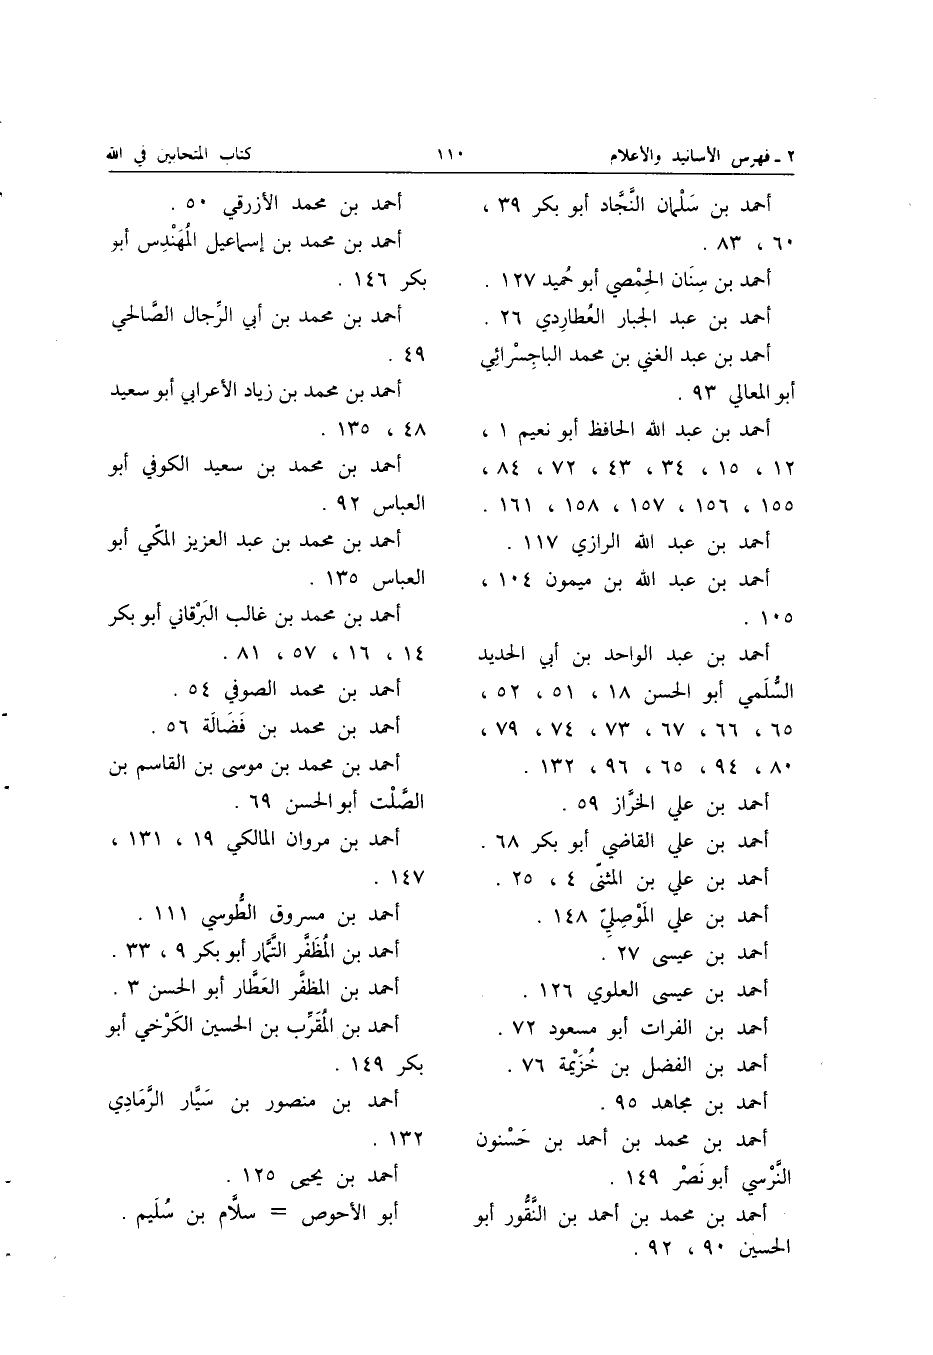 ٢ ـ فهرس الأسانيد والأعلام ١١٠ كتاب المتحابين في الله
أحمد بن سَلْمان النَّجَّاد أبو بكر ٣٩ ،
٦٠ ، ٨٣ .
أحمد بن سِنَان الحِمْصي أبو حُميد ١٢٧ .
أحمد بن عبد الجبار العُطاردي ٢٦ .
أحمد بن عبد الغني بن محمد الباجِسْرائي
أبو المعالي ٩٣ .
أحمد بن عبد الله الحافظ أبو نعيم ١ ،
١٢ ، ١٥ ، ٣٤ ، ٤٣ ، ٧٢ ، ٨٤ ،
١٥٥ ، ١٥٦ ، ١٥٧ ، ١٥٨ ، ١٦١ .
أحمد بن عبد الله الرازي ١١٧ .
أحمد بن عبد الله بن ميمون ١٠٤ ،
١٠٥ .
أحمد بن عبد الواحد بن أبي الحديد
السُّلَمي أبو الحسن ١٨ ، ٥١ ، ٥٢ ،
٦٥ ، ٦٦ ، ٦٧ ، ٧٣ ، ٧٤ ، ٧٩ ،
٨٠ ، ٩٤ ، ٦٥ ، ٩٦ ، ١٣٢ .
أحمد بن علي الخرَّاز ٥٩ .
أحمد بن علي القاضي أبو بكر ٦٨ .
أحمد بن علي بن المثنّى ٤ ، ٢٥ .
أحمد بن علي المَوْصِليّ ١٤٨ .
أحمد بن عيسى ٢٧ .
أحمد بن عيسى العلوي ١٢٦ .
أحمد بن الفرات أبو مسعود ٧٢ .
أحمد بن الفضل بن خُزَيْمة ٧٦ .
أحمد بن مجاهد ٩٥ .
أحمد بن محمد بن أحمد بن حَسْنون
النَّرْسي أبو نَصْر ١٤٩ .
أحمد بن محمد بن أحمد بن النَّقُّور أبو
الحسين ٩٠ ، ٩٢ .
أحمد بن محمد الأزرقي ٥٠ .
أحمد بن محمد بن إسماعيل المُهَنْدِس أبو
بكر ١٤٦ .
أحمد بن محمد بن أبي الرِّجال الصَّالحي
٤٩ .
أحمد بن محمد بن زياد الأعرابي أبو سعيد
٤٨ ، ١٣٥ .
أحمد بن محمد بن سعيد الكوفي أبو
العباس ٩٢ .
أحمد بن محمد بن عبد العزيز المكّي أبو
العباس ١٣٥ .
أحمد بن محمد بن غالب البَرْقاني أبو بكر
١٤ ، ١٦ ، ٥٧ ، ٨١ .
أحمد بن محمد الصوفي ٥٤ .
أحمد بن محمد بن فَضَالَة ٥٦ .
أحمد بن محمد بن موسى بن القاسم بن
الصَّلْت أبو الحسن ٦٩ .
أحمد بن مروان المالكي ١٩ ، ١٣١ ،
١٤٧ .
أحمد بن مسروق الطُّوسي ١١١ .
أحمد بن المُظَفَّر التَّمَّار أبو بكر ٩ ، ٣٣ .
أحمد بن المظفَّر العَطَّار أبو الحسن ٣ .
أحمد بن المُقَرِّب بن الحسين الكَرْخي أبو
بكر ١٤٩ .
أحمد بن منصور بن سَيَّار الرَّمَادِي
١٣٢ .
أحمد بن يحيى ١٢٥ .
أبو الأحوص = سلاَّم بن سُلَيم .